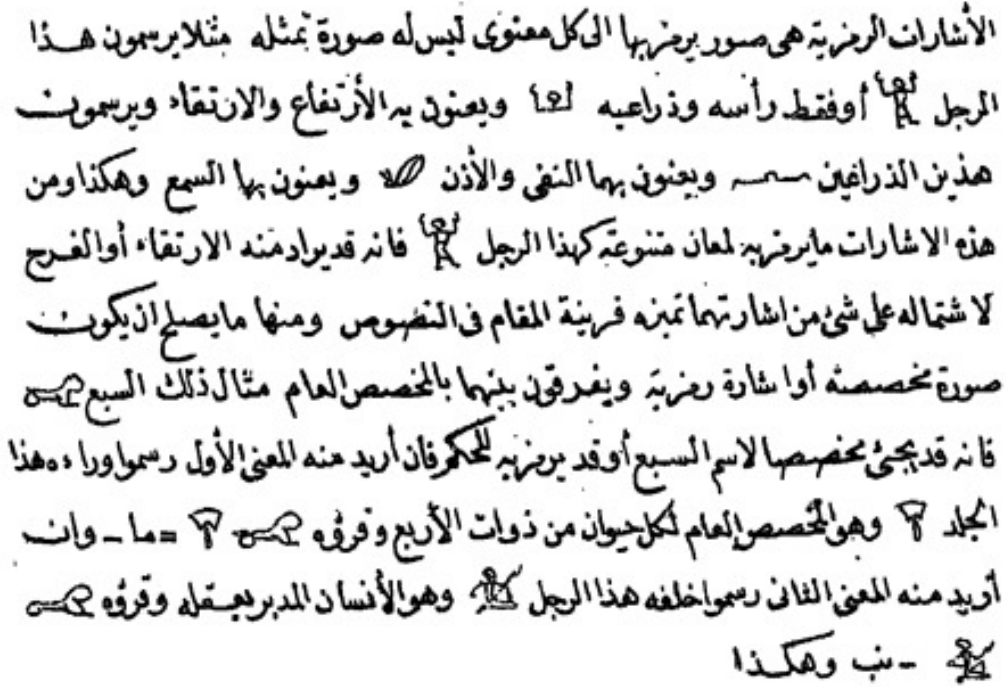 الأشارات الرمزية هى صور يرمز بها الى كل معنوى ليس له صورة تمثله مثلا يرسمون هـذا
الرجل أو فقط رأسه وذراعيه ويعنون به الأرتفاع والارتقاء ويرسمون
هذين الذراعين ويعنون بهما النفى والأذن ويعنون بها السمع وهكذا ومن
هذه الاشارات ما يرمز به لمعان متنوعة كهذا الرجل فانه قد يراد منه الارتقاء أو الفرج
لاشتماله على شئ من اشارتهما تميزه قرينة المقام فى النصوص ومنها ما يصلح ان يكون
صورة مخصصة أو اشارة رمزية ويفرقون بينهما بالمخصص العام مثال ذلك السبع
فانه قد يجئ مخصصا لاسم السبع أو قد يرمز به للحكم فان أريد منه المعنى الأول رسموا وراءه هذا
الجلد وهو المخصص العام لكل حيوان من ذوات الأربع وقرؤه = ما ــ وان
أريد منه المعنى الثانى رسموا خلفه هذا الرجل وهو الأنسان المدبر بعقله وقرؤه
ــ نب وهكـذا